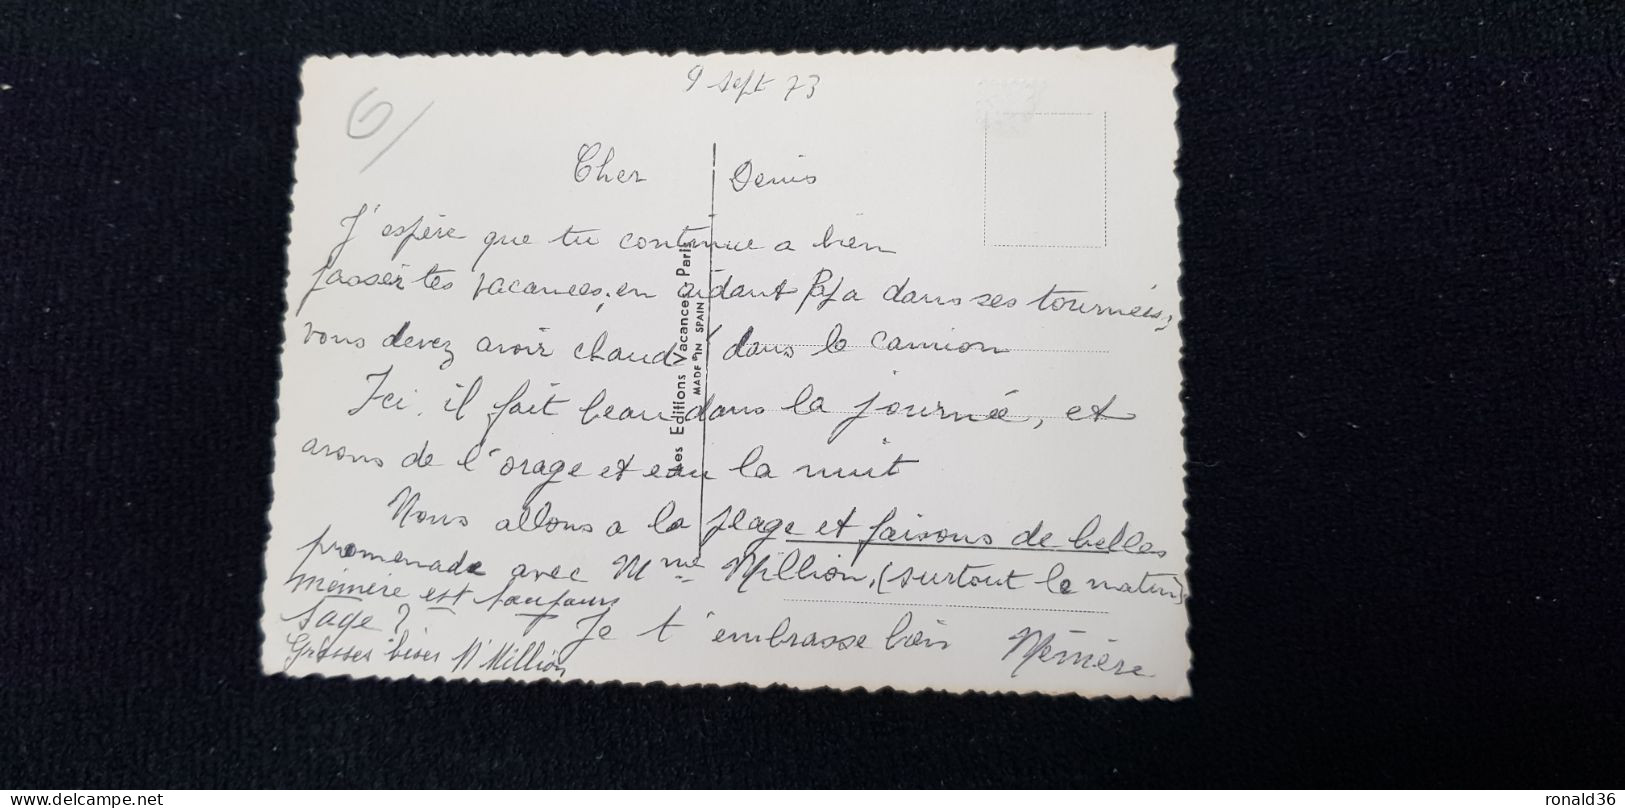 6/
9 sept 73
Cher Denis
J'espère que tu continue a bien
passer tes vacances, en aidant Papa dans ses tournées,
vous devez avoir chaud dans le camion
Ici, il fait beau dans la journée, et
avons de l'orage et eau la nuit
Nous allons a la plage et faisons de belles
promenade avec Mme Million, (surtout le matin)
mémère est toujours
sage ?
Je t'embrasse bien Mémère
Grosses bises M Million
Les Editions Vacances Paris
MADE IN SPAIN
© delcampe.net
ronald36